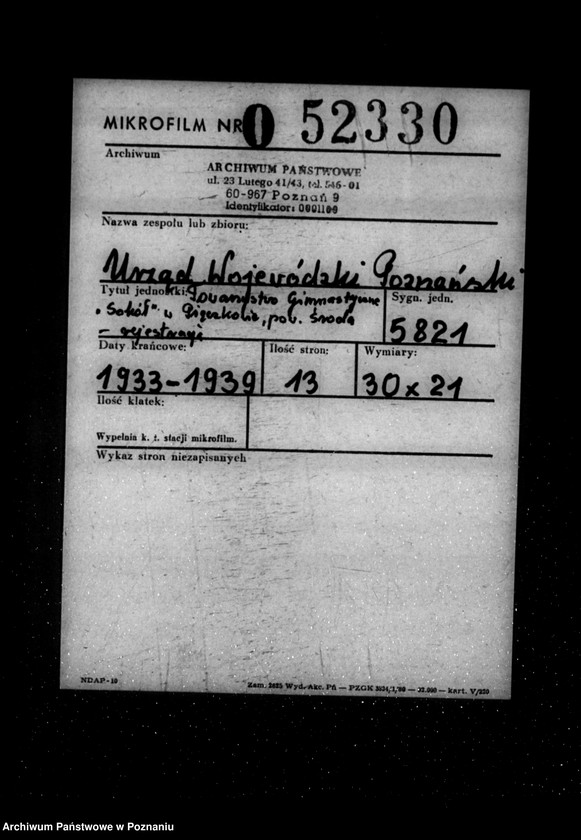 MIKROFILM NR 0 52330
Archiwum
ARCHIWUM PAŃSTWOWE
ul. 23 Lutego 41/43, tel. 546-01
60-967 Poznań 9
Identyfikator: 0001100
Nazwa zespołu lub zbioru:
Urząd Wojewódzki Poznański
Tytuł jednostki: Towarzystwo Gimnastyczne
"Sokół" w pow. Środa
- rejestracja
Sygn. jedn.
5821
Daty krańcowe:
1933-1939
Ilość stron:
13
Wymiary:
30 x 21
Ilość klatek:
Wypełnia k. t. stacji mikrofilm.
Wykaz stron niezapisanych
NDAP-10
Zam. Wyd. Akc. Pń — PZGK — kart. V/220
Archiwum Państwowe w Poznaniu